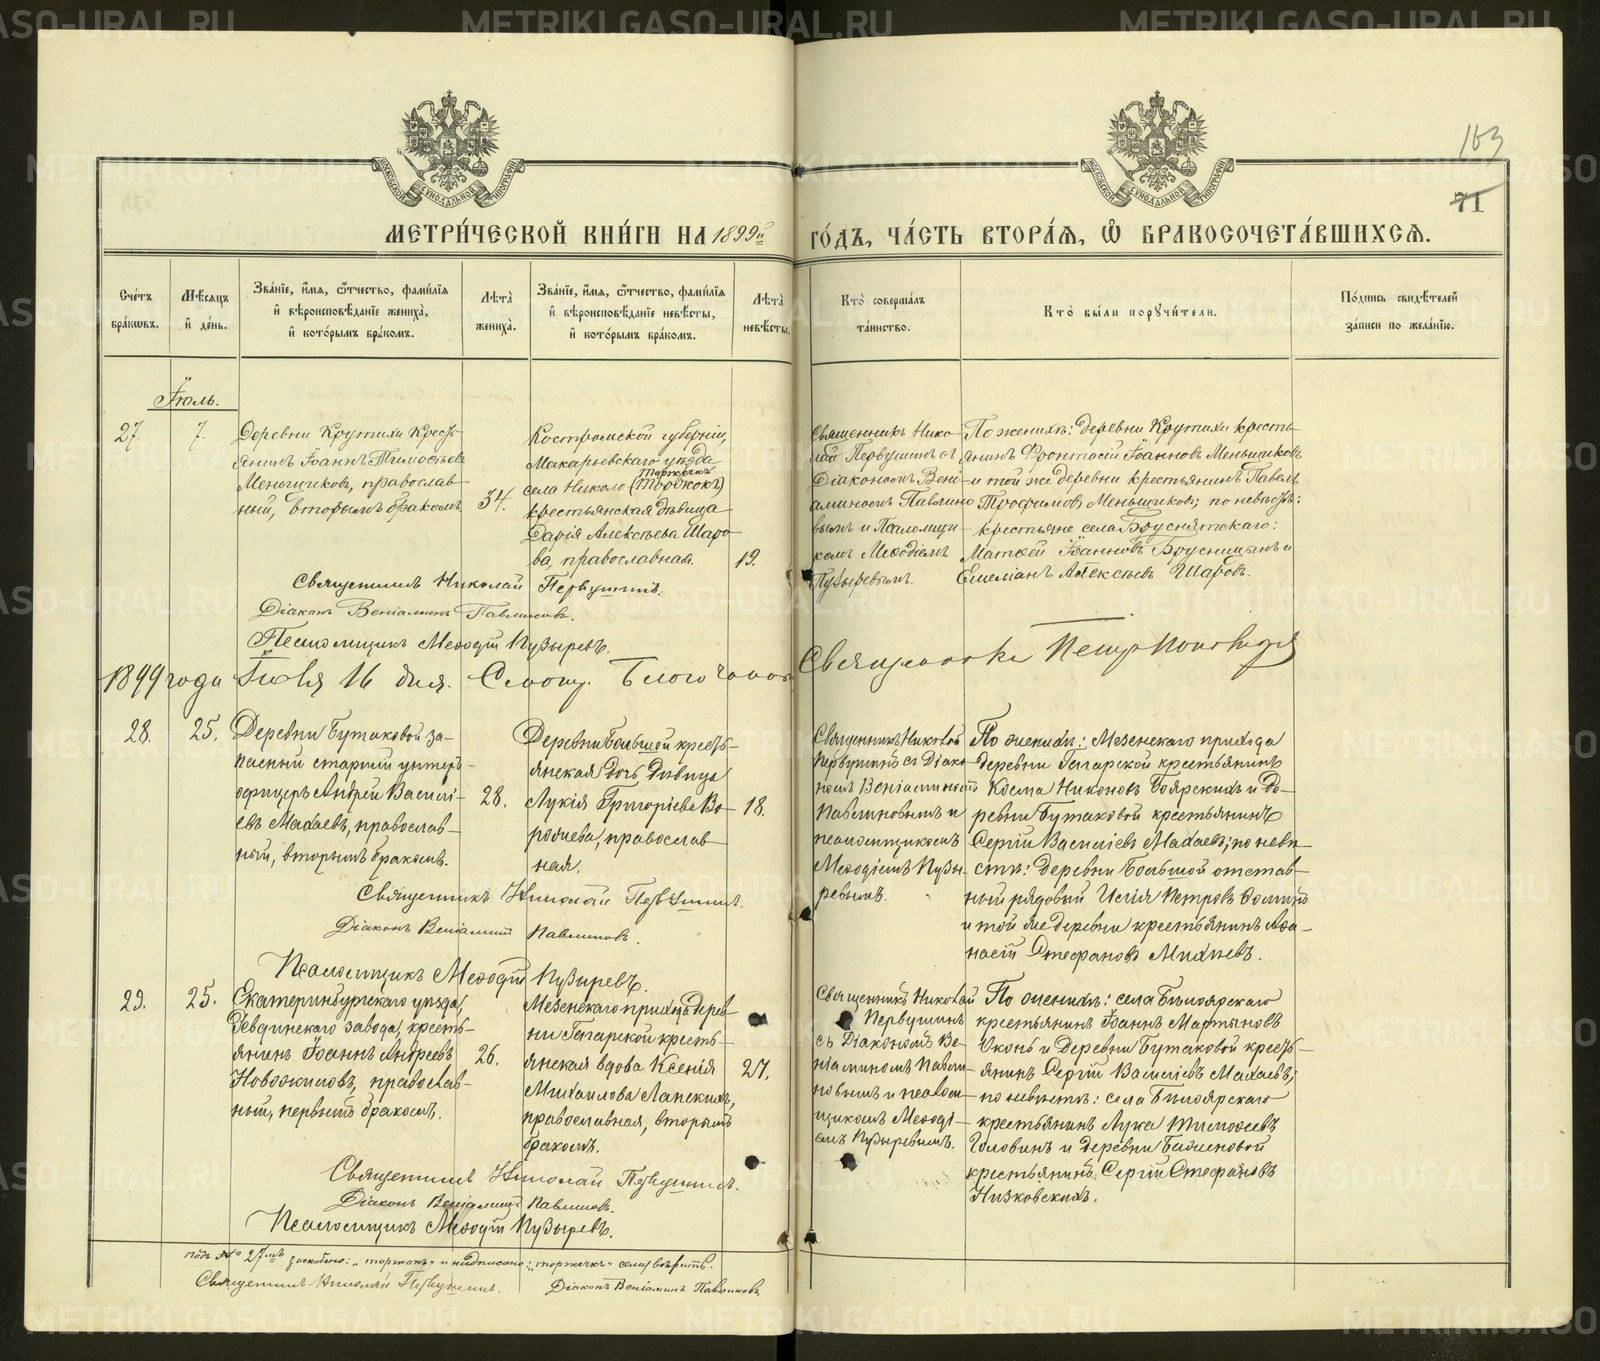 163
71
МЕТРИ́ЧЕСКОЙ КНИ́ГИ НА 1899й ГО́ДЪ, ЧА́СТЬ ВТОРА́Я, Ѡ БРАКОСОЧЕТА́ВШИХСѦ.
Счетъ браковъ.
Мѣсяцъ и день.
Званіе, имя, отчество, фамилія и вѣроисповѣданіе жениха, и которымъ бракомъ.
Лѣта жениха.
Званіе, имя, отчество, фамилія и вѣроисповѣданіе невѣсты, и которымъ бракомъ.
Лѣта невѣсты.
Кто совершалъ таинство.
Кто были поручители.
Подпись свидѣтелей записи по желанію.
Іюль.
27.
7.
Деревни Крутихи кресть-
янинъ Іоаннъ Тимоѳеевъ
Меньщиковъ, православ-
ный, вторымъ бракомъ
34.
Костромской губерніи,
Макарьевскаго уѣзда
села Николо (Торжокъ)
крестьянская дѣвица
Дарія Алексѣева Шаро-
ва, православная.
19.
Священникъ Нико-
лай Первушинъ съ
Діакономъ Вені-
аминомъ Павлино-
вымъ и Псаломщи-
комъ Меѳодіемъ
Пузыревымъ.
По женихѣ: деревни Крутихи кресть-
янинъ Іоанновъ Меньщиковъ
и той же деревни крестьянинъ Павелъ
Трофимовъ Меньщиковъ; по невѣстѣ:
крестьяне села Бруснятскаго:
Матѳей Іоанновъ Брусницынъ и
Емеліанъ Алексѣевъ Шаровъ.
Священникъ Николай Первушинъ.
Діаконъ Веніаминъ Павлиновъ.
Псаломщикъ Меѳодій Пузыревъ.
1899 года 16 дня. Священникъ Петр
28.
25.
Деревни Бутаковой за-
пасный старшій унтеръ-
офицеръ Андрей Василі-
евъ Махаевъ, православ-
ный, вторымъ бракомъ.
28.
Деревни Большой кресть-
янская дочь дѣвица
Лукія Григоріева Во-
робіева, православ-
ная.
18.
Священникъ Николай
Первушинъ съ Діако-
номъ Веніаминомъ
Павлиновымъ и
псаломщикомъ
Меѳодіемъ Пузы-
ревымъ.
По женихѣ: Мезенскаго прихода
деревни Гагарской крестьянинъ
Косма Никоновъ Боярскихъ и де-
ревни Бутаковой крестьянинъ
Сергій Василіевъ Махаевъ; по невѣ-
стѣ: деревни Большой отстав-
ный рядовой Петровъ
и той же деревни крестьянинъ Аѳа-
насій Стефановъ
Священникъ Николай Первушинъ.
Діаконъ Веніаминъ Павлиновъ.
Псаломщикъ Меѳодій Пузыревъ.
29.
25.
Екатеринбургскаго уѣзда,
Ревдинскаго завода, кресть-
янинъ Іоаннъ Андреевъ
Новожиловъ, православ-
ный, первымъ бракомъ.
26.
Мезенскаго прихода дерев-
ни Гагарской кресть-
янская вдова Ксенія
Михаилова Ланскихъ,
православная, вторымъ
бракомъ.
27.
Священникъ Николай
Первушинъ
съ Діакономъ Ве-
ніаминомъ Павли-
новымъ и псалом-
щикомъ Меѳоді-
емъ Пузыревымъ.
По женихѣ: села Бѣлоярскаго
крестьянинъ Іоаннъ Мартыновъ
и деревни Бутаковой кресть-
янинъ Сергій Василіевъ Махаевъ;
по невѣстѣ: села Бѣлоярскаго
крестьянинъ Лука Тимоѳеевъ
Головинъ и деревни Баженовой
крестьянинъ Сергій Стефановъ
Низковскихъ.
Священникъ Николай Первушинъ.
Діаконъ Веніаминъ Павлиновъ.
Псаломщикъ Меѳодій Пузыревъ.
Подъ № 27-мъ заскоблено: „торжокъ" и надписано: „торжекъ" сему вѣрить.
Священникъ Николай Первушинъ. Діаконъ Веніаминъ Павлиновъ.
METRIKI.GASO-URAL.RU